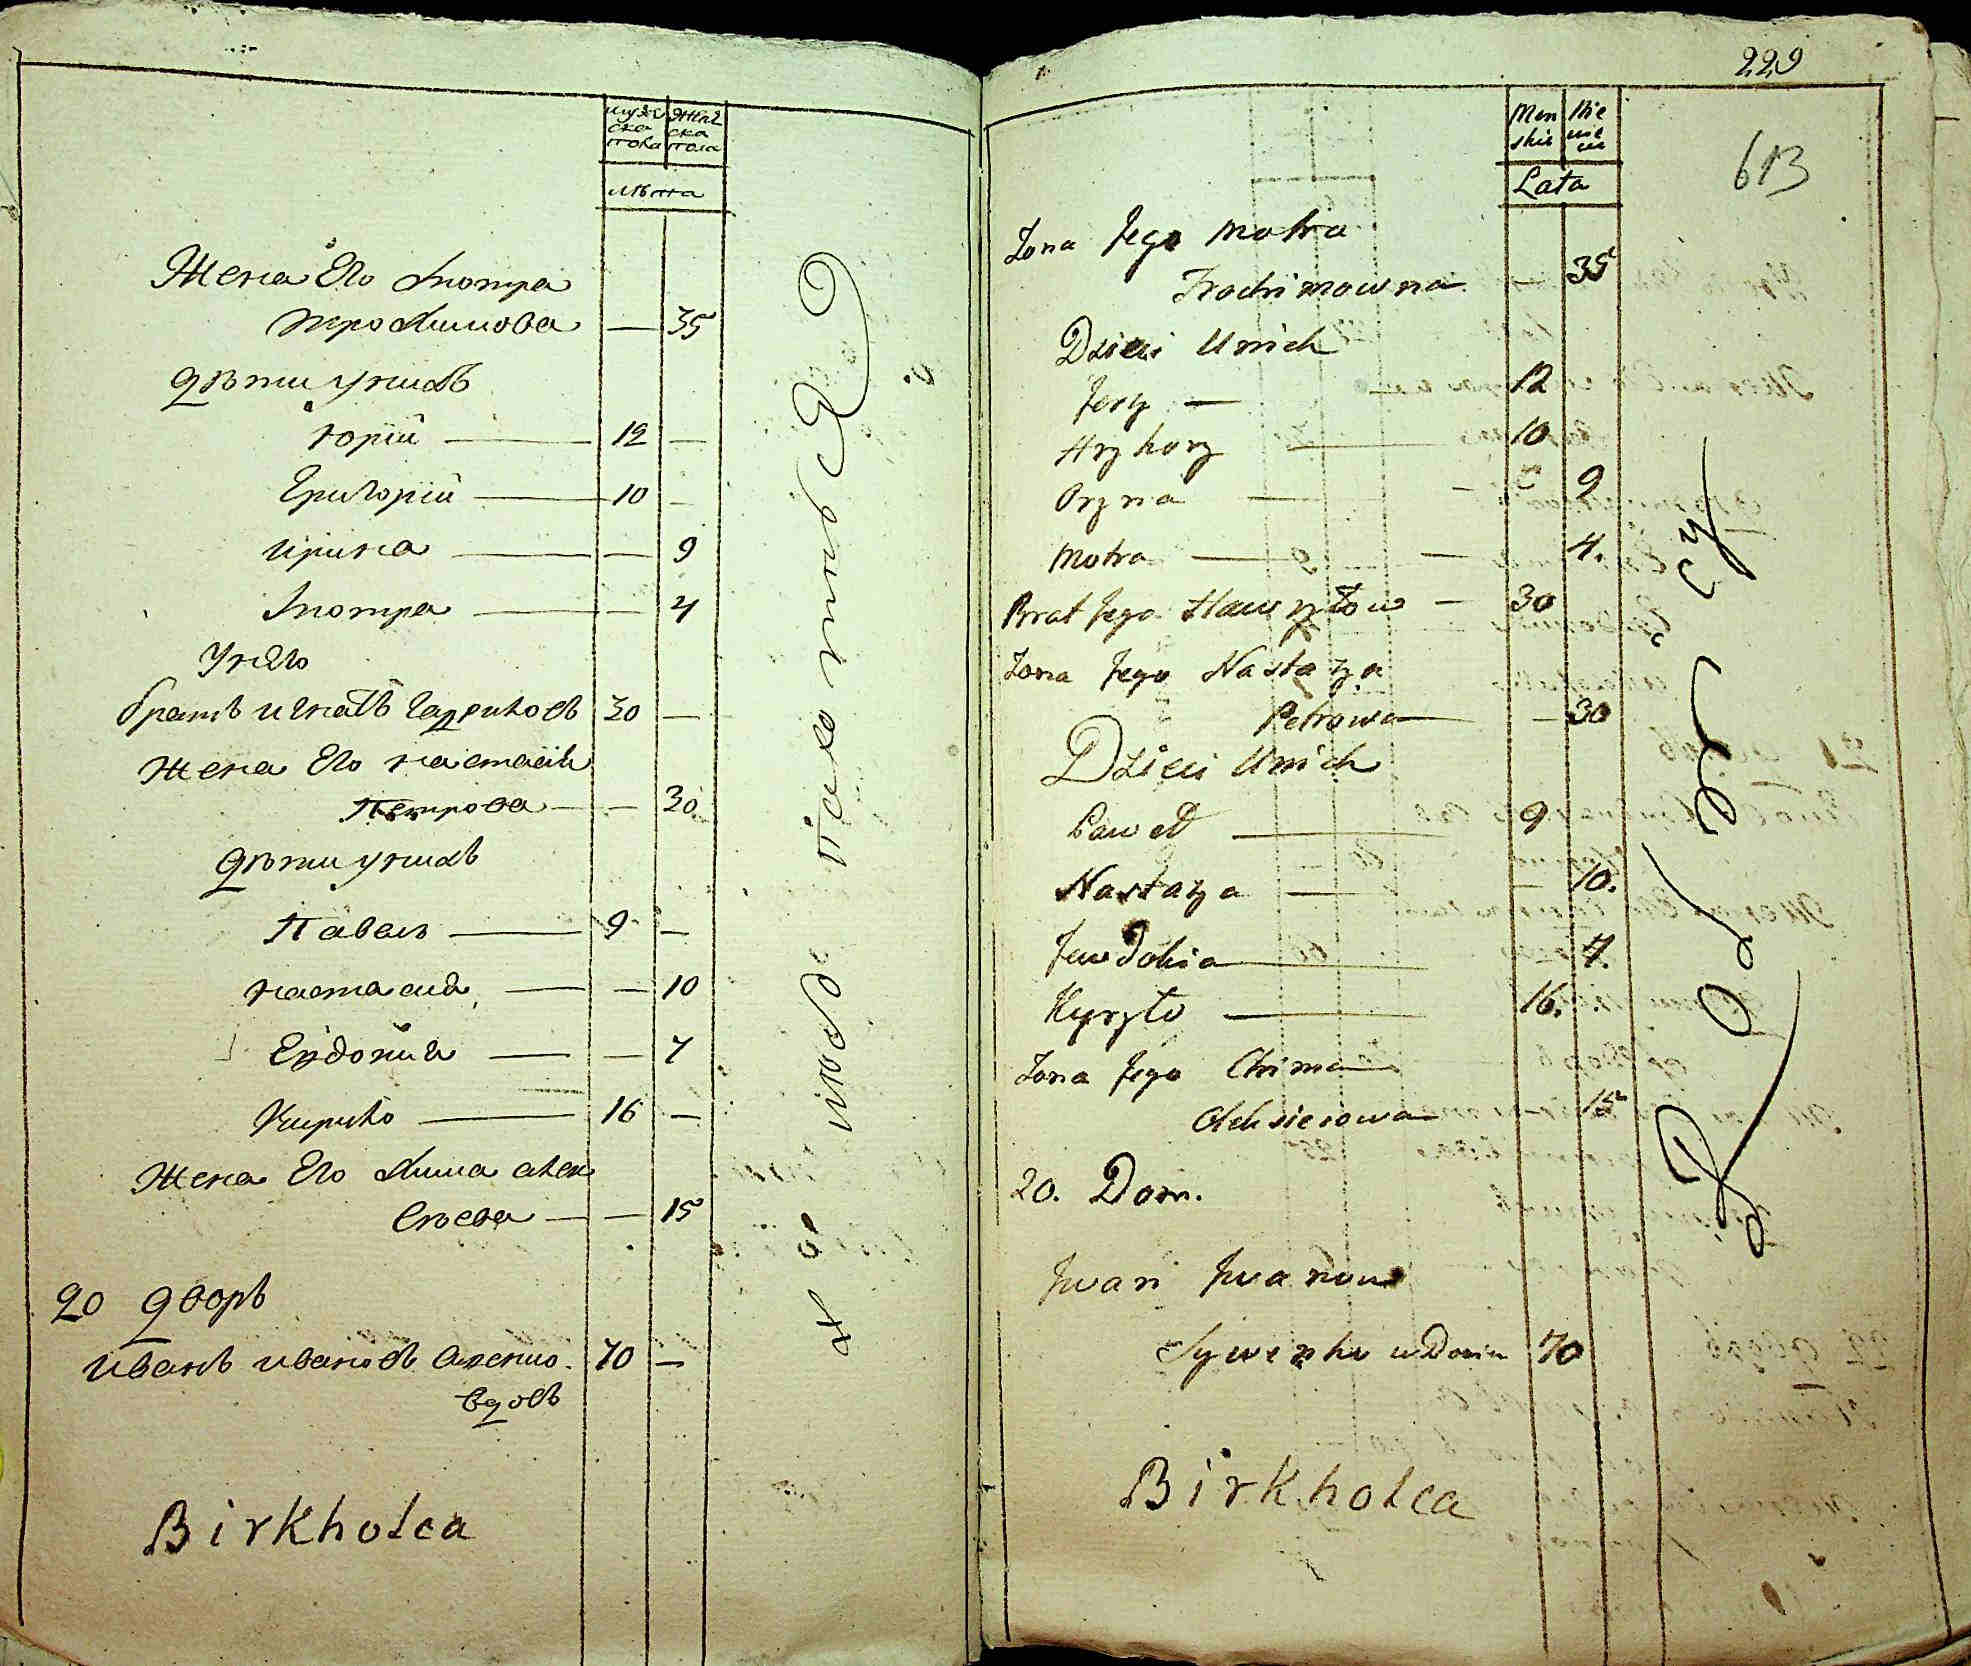 мужеска пола
женска пола
лѣта
Жена Его Мотра
трохимова — 35
Дѣти унихъ
Юрій — 12 —
Григорій — 10 —
Ирина — — 9
Мотра — — 4
Унего
братъ Игнатъ Гавриловъ 30 —
Жена Его настасія
Петрова — — 30
Дѣти унихъ
Павелъ — 9 —
настасия — — 10
Евдокия — — 7
Кирило — 16 —
Жена Его Хима алек
сѣева — — 15
20 Дворъ
Иванъ ивановъ 70 —
вдовъ
Birkholca
229
613
Men
skie
Lata
Zona Jego Motra
Trochimowna — 35
Dzieci Unich
Jerzy — 12
Hryhory — 10
Oryna — — 9
Motra — — 4.
Brat Jego — 30
Zona Jego Nastazya
Petrowa — 30
Dzieci Unich
Paweł — 9
Nastazya — — 10.
Jewdokia — 4.
Kyryło — 16.
Zona Jego Chima
Oleksieiowa — 15
20. Dom.
Jwan Jwanow
wdowiec 70
Birkholca